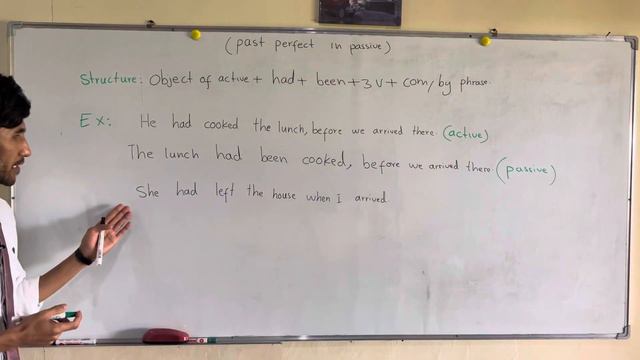 (past perfect in passive)
Structure: Object of active + had + been + 3 V + com/by phrase.
Ex: He had cooked the lunch, before we arrived there. (active)
The lunch had been cooked, before we arrived there. (passive)
She had left the house when I arrived.